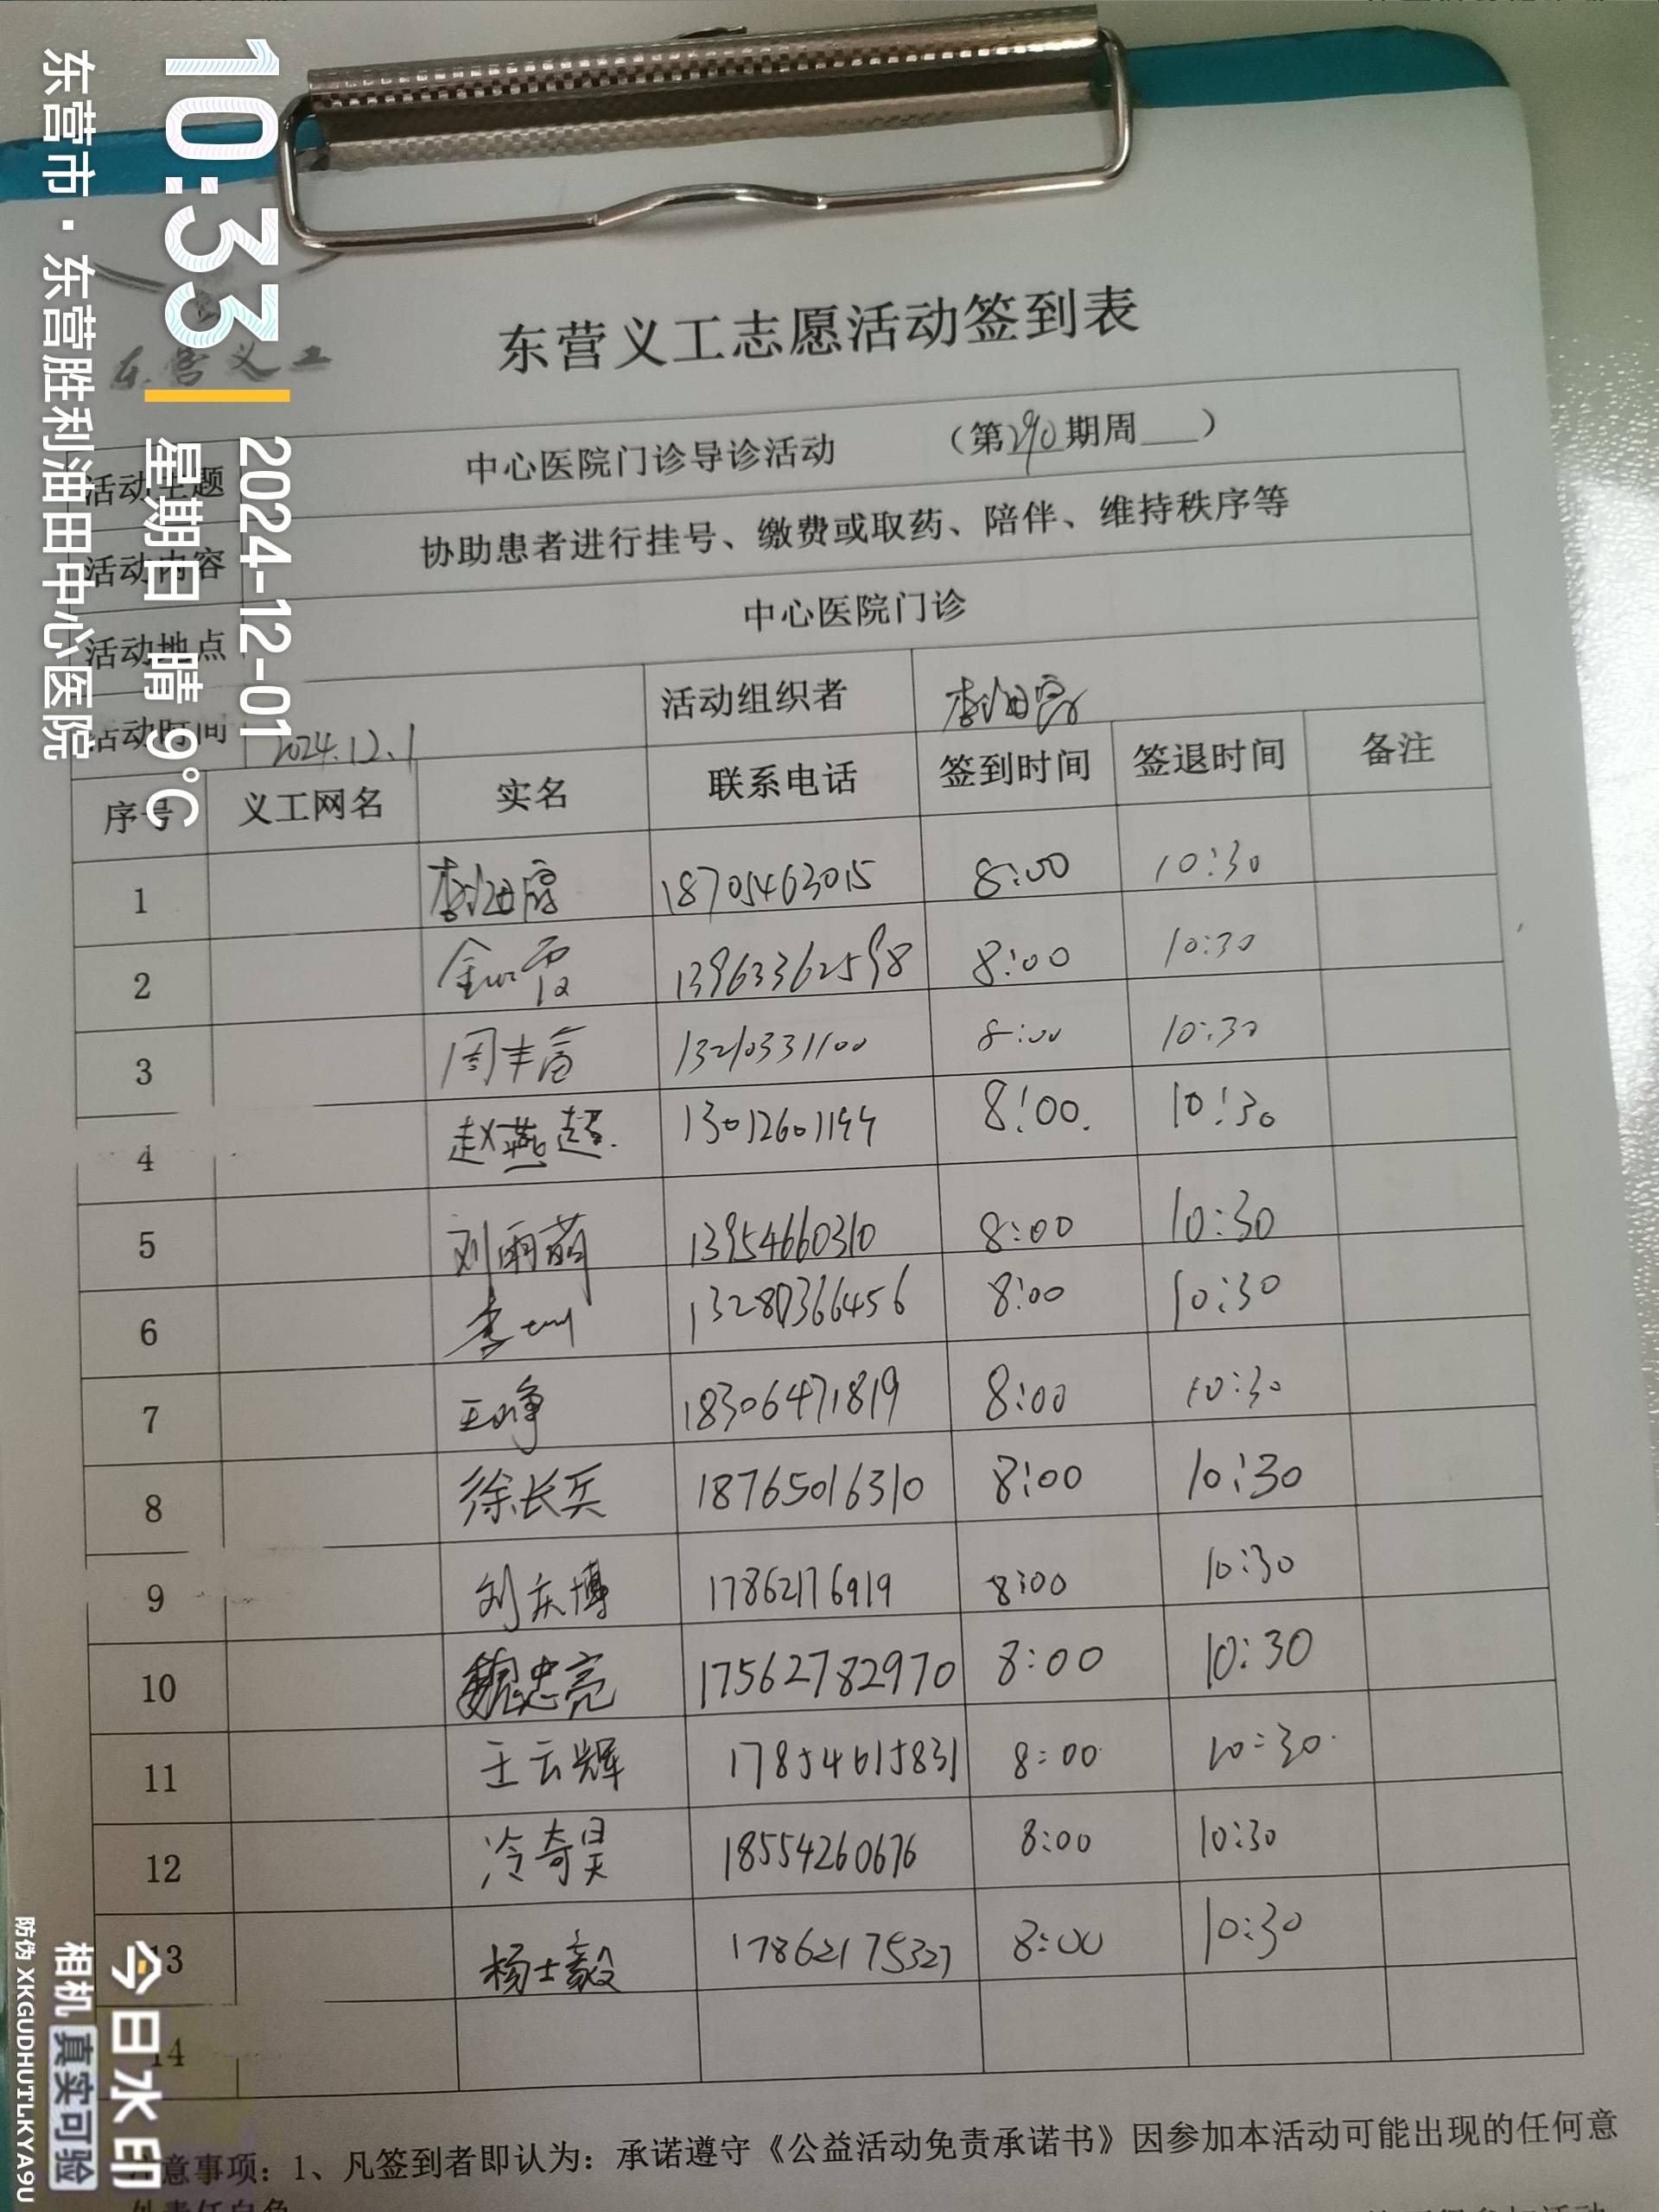 东营义工志愿活动签到表
东营义工
活动主题 中心医院门诊导诊活动 （第290期周___）
活动内容 协助患者进行挂号、缴费或取药、陪伴、维持秩序等
活动地点 中心医院门诊
活动时间 2024.12.1 活动组织者
序号 义工网名 实名 联系电话 签到时间 签退时间 备注
1 18705463015 8:00 10:30
2 13963362598 8:00 10:30
3 周丰富 13210331100 8:00 10:30
4 赵燕超. 13012601194 8:00. 10:30
5 刘雨萌 13954660310 8:00 10:30
6 13280366456 8:00 10:30
7 王峥 18306471819 8:00 10:30
8 徐长兵 18765016310 8:00 10:30
9 刘庆博 17862176919 8:00 10:30
10 魏忠亮 17562782970 8:00 10:30
11 王云辉 17854615831 8:00 10:30
12 冷奇昊 18554260676 8:00 10:30
13 杨士毅 17862175327 8:00 10:30
14
注意事项：1、凡签到者即认为：承诺遵守《公益活动免责承诺书》因参加本活动可能出现的任何意
10:33
2024-12-01
星期日 晴 9℃
东营市·东营胜利油田中心医院
今日水印
相机 真实可验
防伪 XKGUDHUTLKYA9U